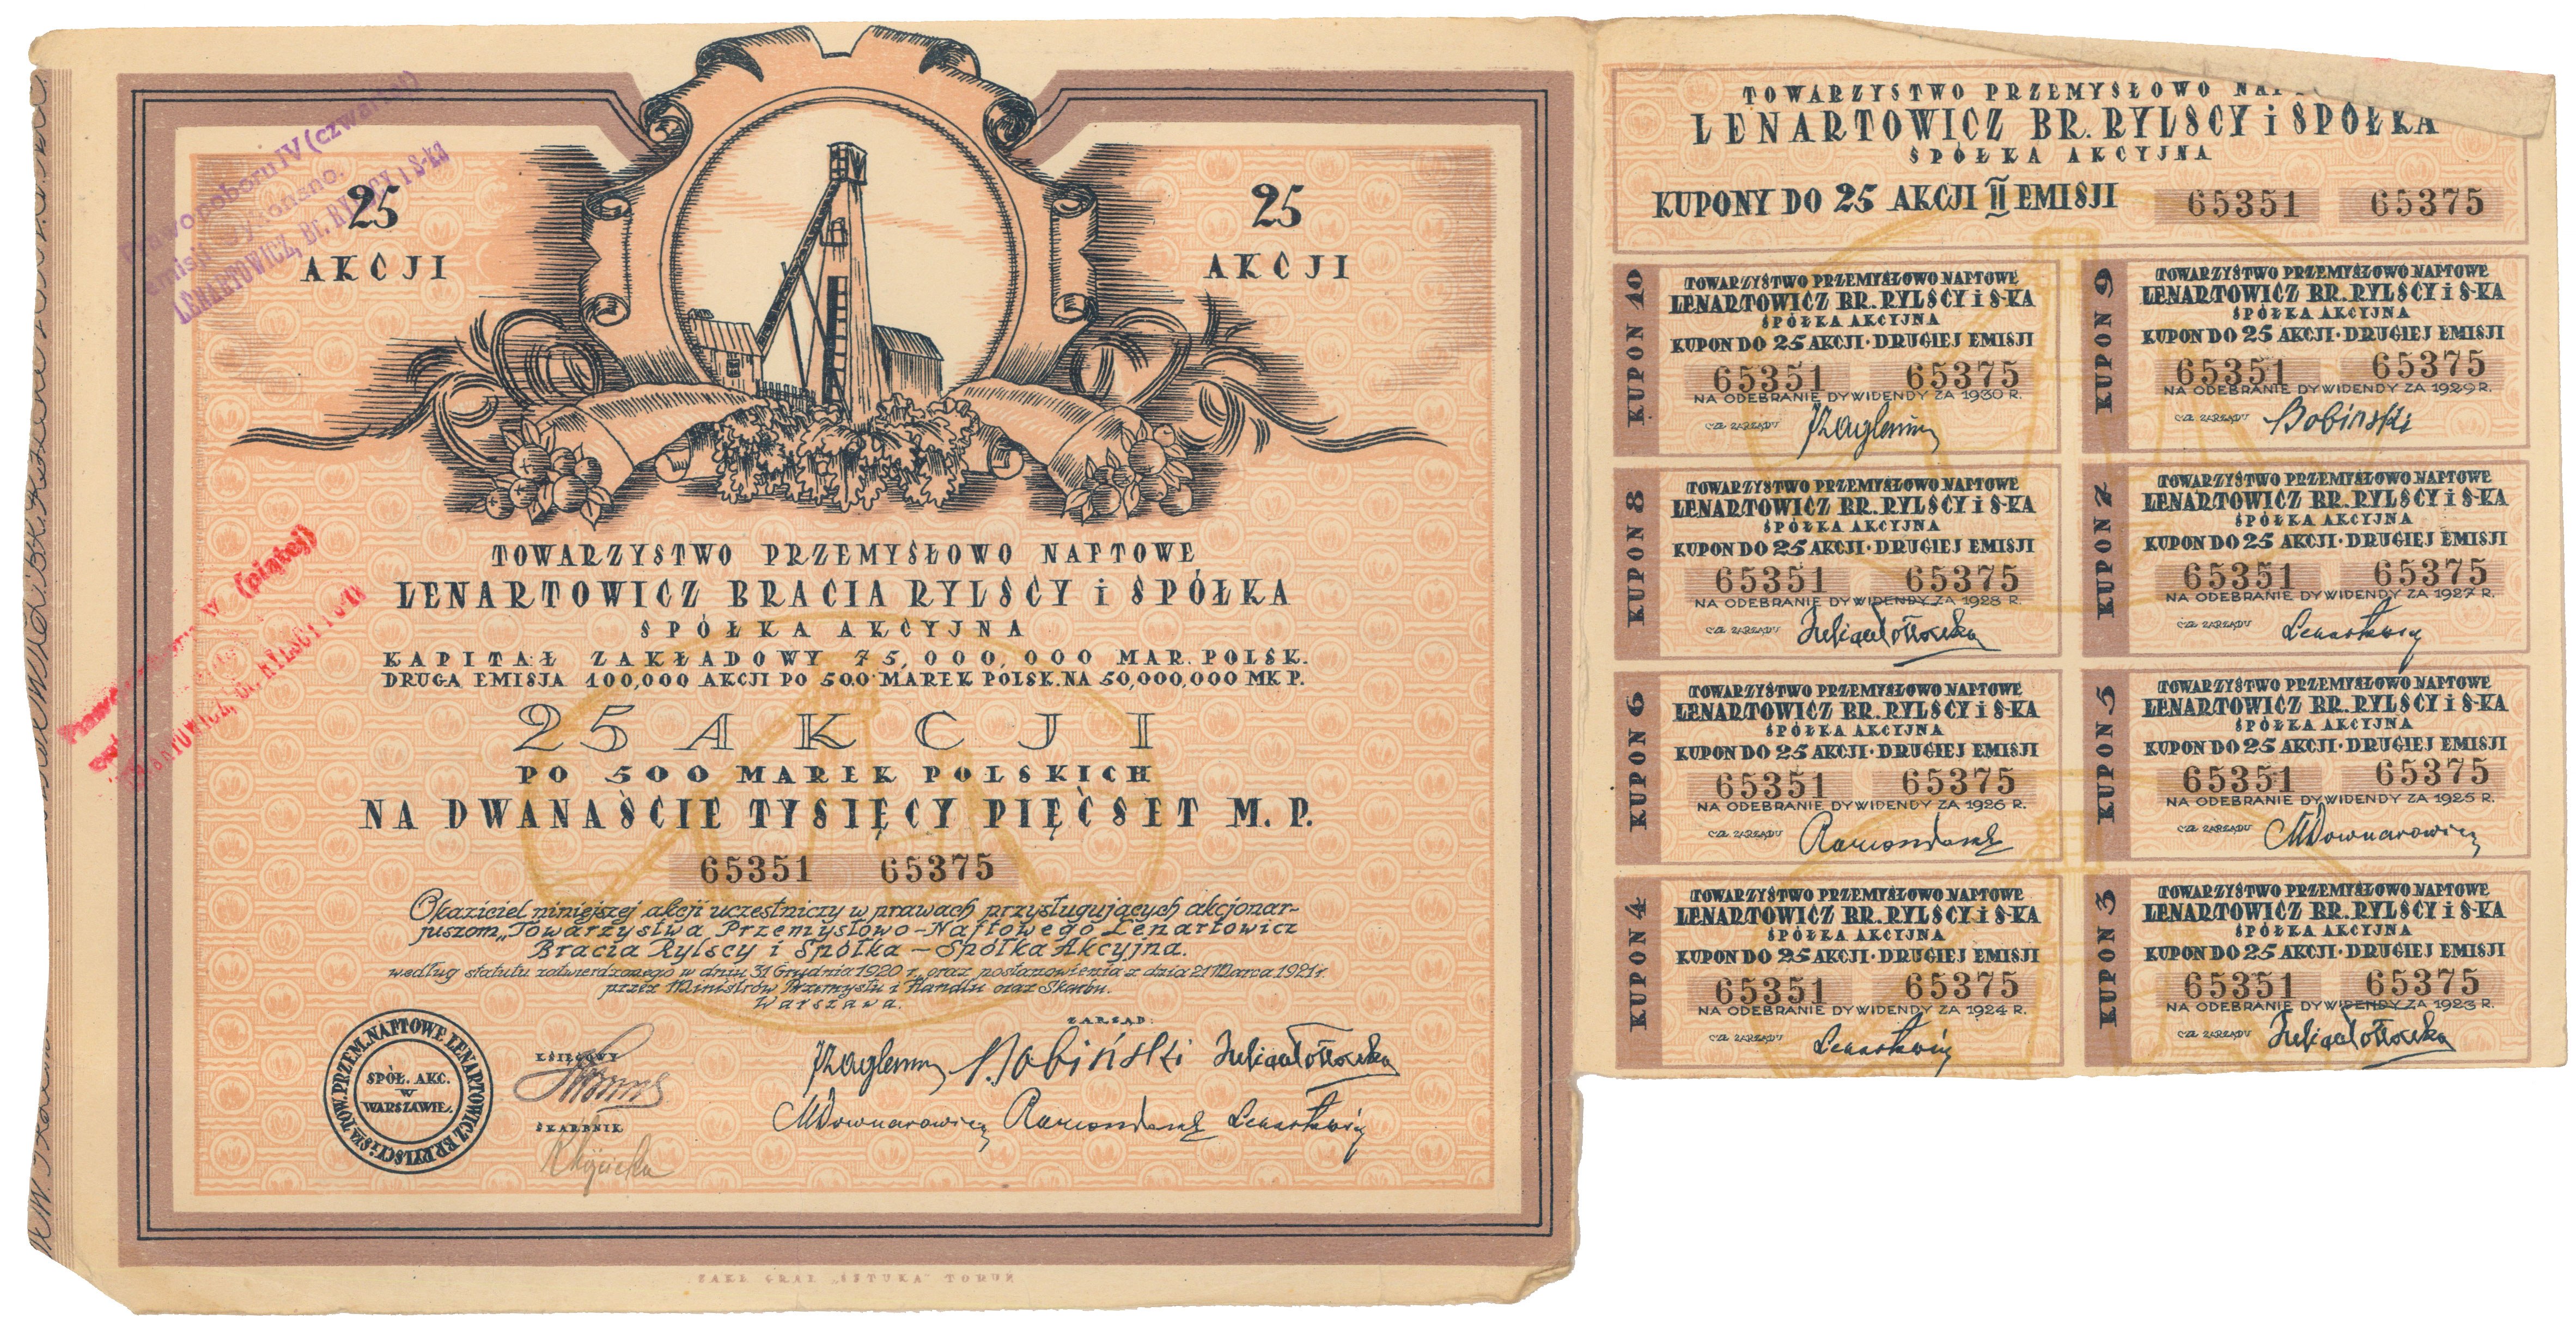 25
AKCJI
25
AKCJI
Prawo poboru IV (czwartej)
emisji wykonano.
LENARTOWICZ, Br. RYLSCY i S-ka
(piątej)
TOWARZYSTWO PRZEMYSŁOWO NAFTOWE
LENARTOWICZ BRACIA RYLSCY i SPÓŁKA
SPÓŁKA AKCYJNA
KAPITAŁ ZAKŁADOWY 75,000,000 MAR. POLSK.
DRUGA EMISJA 100,000 AKCJI PO 500 MAREK POLSK. NA 50,000,000 MK P.
25 AKCJI
PO 500 MAREK POLSKICH
NA DWANAŚCIE TYSIĘCY PIĘĆSET M. P.
65351 65375
Okaziciel niniejszej akcji uczestniczy w prawach przysługujących akcjonar-
juszom „Towarzystwa Przemysłowo-Naftowego Lenartowicz
Bracia Rylscy i Spółka – Spółka Akcyjna.
według statutu zatwierdzonego w dniu 31 Grudnia 1920 r. oraz postanowienia z dnia 21 Marca 1921 r.
przez Ministrów Przemysłu i Handlu oraz Skarbu.
Warszawa.
TOW. PRZEM. NAFTOWE LENARTOWICZ BR. RYLSCY i S-ka
SPÓŁ. AKC.
W
WARSZAWIE.
KSIĘGOWY
SKARBNIK
ZARZĄD:
Bobiński
MDownarowicz Lenartowicz
ZAKŁ. GRAF. „SZTUKA" TORUŃ
TOWARZYSTWO PRZEMYSŁOWO
LENARTOWICZ BR. RYLSCY i SPÓŁKA
SPÓŁKA AKCYJNA
KUPONY DO 25 AKCJI II EMISJI 65351 65375
KUPON 10
TOWARZYSTWO PRZEMYSŁOWO NAFTOWE
LENARTOWICZ BR. RYLSCY i S-KA
SPÓŁKA AKCYJNA
KUPON DO 25 AKCJI · DRUGIEJ EMISJI
65351 65375
NA ODEBRANIE DYWIDENDY ZA 1930 R.
ZA ZARZĄDU
KUPON 9
TOWARZYSTWO PRZEMYSŁOWO NAFTOWE
LENARTOWICZ BR. RYLSCY i S-KA
SPÓŁKA AKCYJNA
KUPON DO 25 AKCJI · DRUGIEJ EMISJI
65351 65375
NA ODEBRANIE DYWIDENDY ZA 1929 R.
ZA ZARZĄDU Bobiński
KUPON 8
TOWARZYSTWO PRZEMYSŁOWO NAFTOWE
LENARTOWICZ BR. RYLSCY i S-KA
SPÓŁKA AKCYJNA
KUPON DO 25 AKCJI · DRUGIEJ EMISJI
65351 65375
NA ODEBRANIE DYWIDENDY ZA 1928 R.
ZA ZARZĄDU
KUPON 7
TOWARZYSTWO PRZEMYSŁOWO NAFTOWE
LENARTOWICZ BR. RYLSCY i S-KA
SPÓŁKA AKCYJNA
KUPON DO 25 AKCJI · DRUGIEJ EMISJI
65351 65375
NA ODEBRANIE DYWIDENDY ZA 1927 R.
ZA ZARZĄDU Lenartowicz
KUPON 6
TOWARZYSTWO PRZEMYSŁOWO NAFTOWE
LENARTOWICZ BR. RYLSCY i S-KA
SPÓŁKA AKCYJNA
KUPON DO 25 AKCJI · DRUGIEJ EMISJI
65351 65375
NA ODEBRANIE DYWIDENDY ZA 1926 R.
ZA ZARZĄDU
KUPON 5
TOWARZYSTWO PRZEMYSŁOWO NAFTOWE
LENARTOWICZ BR. RYLSCY i S-KA
SPÓŁKA AKCYJNA
KUPON DO 25 AKCJI · DRUGIEJ EMISJI
65351 65375
NA ODEBRANIE DYWIDENDY ZA 1925 R.
ZA ZARZĄDU MDownarowicz
KUPON 4
TOWARZYSTWO PRZEMYSŁOWO NAFTOWE
LENARTOWICZ BR. RYLSCY i S-KA
SPÓŁKA AKCYJNA
KUPON DO 25 AKCJI · DRUGIEJ EMISJI
65351 65375
NA ODEBRANIE DYWIDENDY ZA 1924 R.
ZA ZARZĄDU Lenartowicz
KUPON 3
TOWARZYSTWO PRZEMYSŁOWO NAFTOWE
LENARTOWICZ BR. RYLSCY i S-KA
SPÓŁKA AKCYJNA
KUPON DO 25 AKCJI · DRUGIEJ EMISJI
65351 65375
NA ODEBRANIE DYWIDENDY ZA 1923 R.
ZA ZARZĄDU